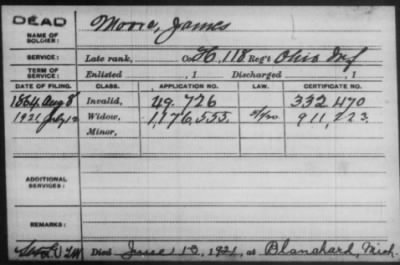 DEAD
NAME OF SOLDIER: Moore, James
SERVICE: Late rank, Co. H, 118 Reg't Ohio Inf
TERM OF SERVICE: Enlisted , 1 Discharged , 1
DATE OF FILING. CLASS. APPLICATION NO. LAW. CERTIFICATE NO.
1864 Aug 8 Invalid, 49.726 332.470
1921 July 12 Widow, 1,176,555. 911,223.
Minor,
ADDITIONAL SERVICES:
REMARKS:
Died June 10, 1921, at Blanchard, Mich.